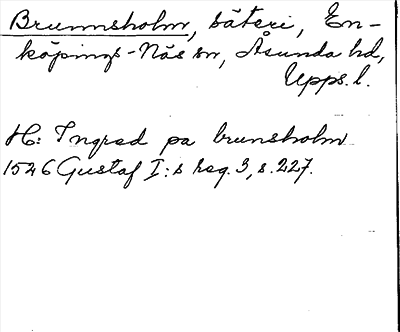 Brunnsholm, säteri, En-
köpings-Näs sn, Åsunda hd,
Upps. l.
H: Ingrad pa brunsholm
1546 Gustaf I:s reg. 3, s. 227.